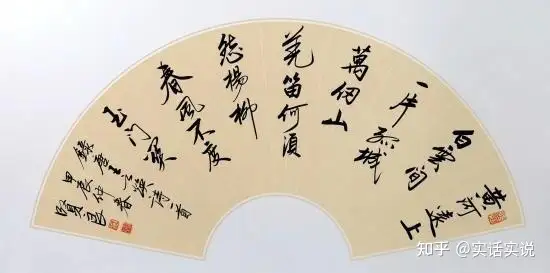 黄河遠上
白雲间
一片孤城
萬仞山
羌笛何須
怨楊柳
春風不度
玉门関
錄唐王之渙诗一首
甲辰仲春
知乎 @实话实说